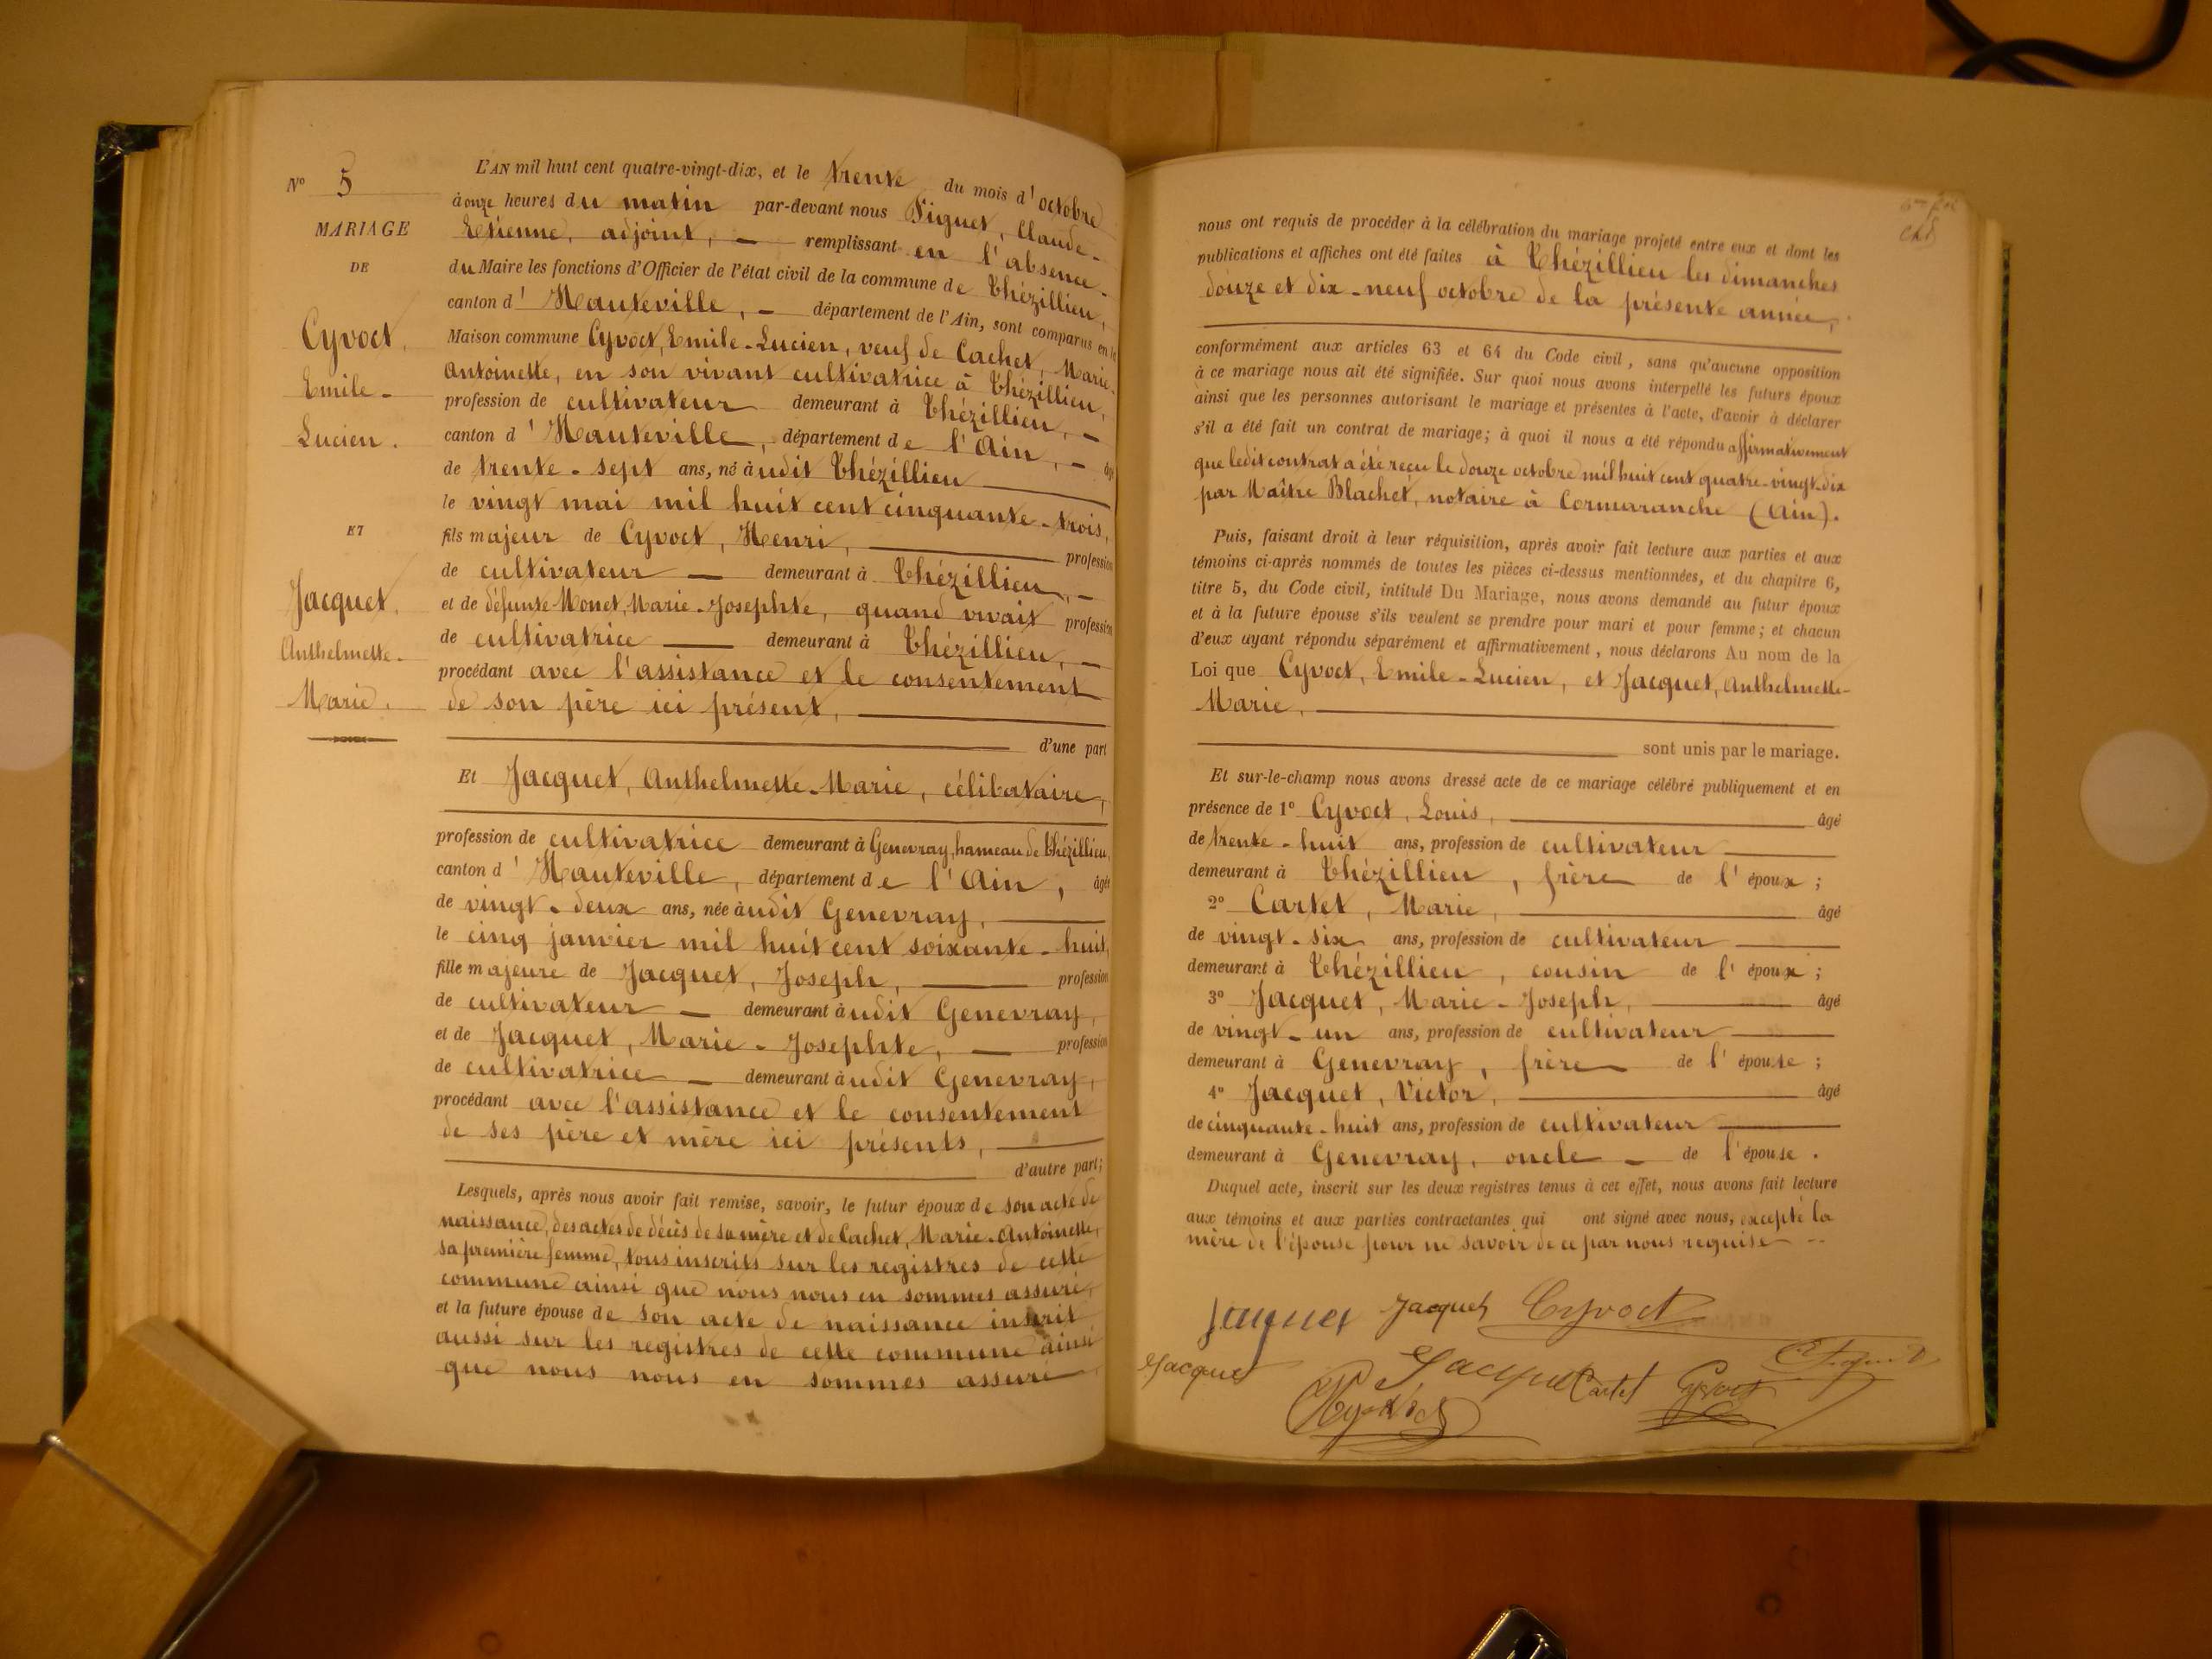 N° 5
MARIAGE
DE
Cyvoct,
Emile-
Lucien.
ET
Jacquet,
Anthelmette-
Marie.
L'AN mil huit cent quatre-vingt-dix, et le trente du mois d'octobre
à onze heures du matin par-devant nous Figuet, Claude-
Etienne, adjoint, — remplissant en l'absence
du Maire les fonctions d'Officier de l'état civil de la commune de Thézillieu,
canton d'Hauteville, — département de l'Ain, sont comparus en la
Maison commune Cyvoct, Emile-Lucien, veuf de Cachet, Marie-
Antoinette, en son vivant cultivatrice à Thézillieu,
profession de cultivateur demeurant à Thézillieu, —
canton d'Hauteville, département de l'Ain, — âgé
de trente-sept ans, né àudit Thézillieu
le vingt mai mil huit cent cinquante-trois,
fils majeur de Cyvoct, Henri, profession
de cultivateur — demeurant à Thézillieu, —
et de défunte Monet, Marie-Josephte, quand vivait profession
de cultivatrice — demeurant à Thézillieu, —
procédant avec l'assistance et le consentement
de son père ici présent,
d'une part
Et Jacquet, Anthelmette-Marie, célibataire,
profession de cultivatrice demeurant à Genevray, hameau de Thézillieu,
canton d'Hauteville, département de l'Ain, âgée
de vingt-deux ans, née àudit Genevray,
le cinq janvier mil huit cent soixante-huit,
fille majeure de Jacquet, Joseph, profession
de cultivateur — demeurant àudit Genevray,
et de Jacquet, Marie-Josephte, — profession
de cultivatrice — demeurant àudit Genevray,
procédant avec l'assistance et le consentement
de ses père et mère ici présents,
d'autre part;
Lesquels, après nous avoir fait remise, savoir, le futur époux de son acte de
naissance, des actes de décès de sa mère et de Cachet, Marie-Antoinette,
sa première femme, tous inscrits sur les registres de cette
commune ainsi que nous nous en sommes assuré,
et la future épouse de son acte de naissance inscrit
aussi sur les registres de cette commune ainsi
que nous nous en sommes assuré
nous ont requis de procéder à la célébration du mariage projeté entre eux et dont les
publications et affiches ont été faites à Thézillieu les dimanches
douze et dix-neuf octobre de la présente année,
conformément aux articles 63 et 64 du Code civil, sans qu'aucune opposition
à ce mariage nous ait été signifiée. Sur quoi nous avons interpellé les futurs époux
ainsi que les personnes autorisant le mariage et présentes à l'acte, d'avoir à déclarer
s'il a été fait un contrat de mariage; à quoi il nous a été répondu affirmativement
que ledit contrat a été reçu le douze octobre mil huit cent quatre-vingt-dix
par Maître Blachet, notaire à Cormaranche (Ain).
Puis, faisant droit à leur réquisition, après avoir fait lecture aux parties et aux
témoins ci-après nommés de toutes les pièces ci-dessus mentionnées, et du chapitre 6,
titre 5, du Code civil, intitulé Du Mariage, nous avons demandé au futur époux
et à la future épouse s'ils veulent se prendre pour mari et pour femme; et chacun
d'eux ayant répondu séparément et affirmativement, nous déclarons Au nom de la
Loi que Cyvoct, Emile-Lucien, et Jacquet, Anthelmette-
Marie,
sont unis par le mariage.
Et sur-le-champ nous avons dressé acte de ce mariage célébré publiquement et en
présence de 1° Cyvoct, Louis, âgé
de trente-huit ans, profession de cultivateur
demeurant à Thézillieu, frère de l'époux;
2° Cartet, Marie, âgé
de vingt-six ans, profession de cultivateur
demeurant à Thézillieu, cousin de l'époux;
3° Jacquet, Marie-Joseph, âgé
de vingt-un ans, profession de cultivateur
demeurant à Genevray, frère de l'épouse;
4° Jacquet, Victor, âgé
de cinquante-huit ans, profession de cultivateur
demeurant à Genevray, oncle — de l'épouse.
Duquel acte, inscrit sur les deux registres tenus à cet effet, nous avons fait lecture
aux témoins et aux parties contractantes qui ont signé avec nous, excepté la
mère de l'épouse pour ne savoir de ce par nous requise
Jacquet Jacquet Cyvoct
Jacquet Jacquet Cartet Cyvoct